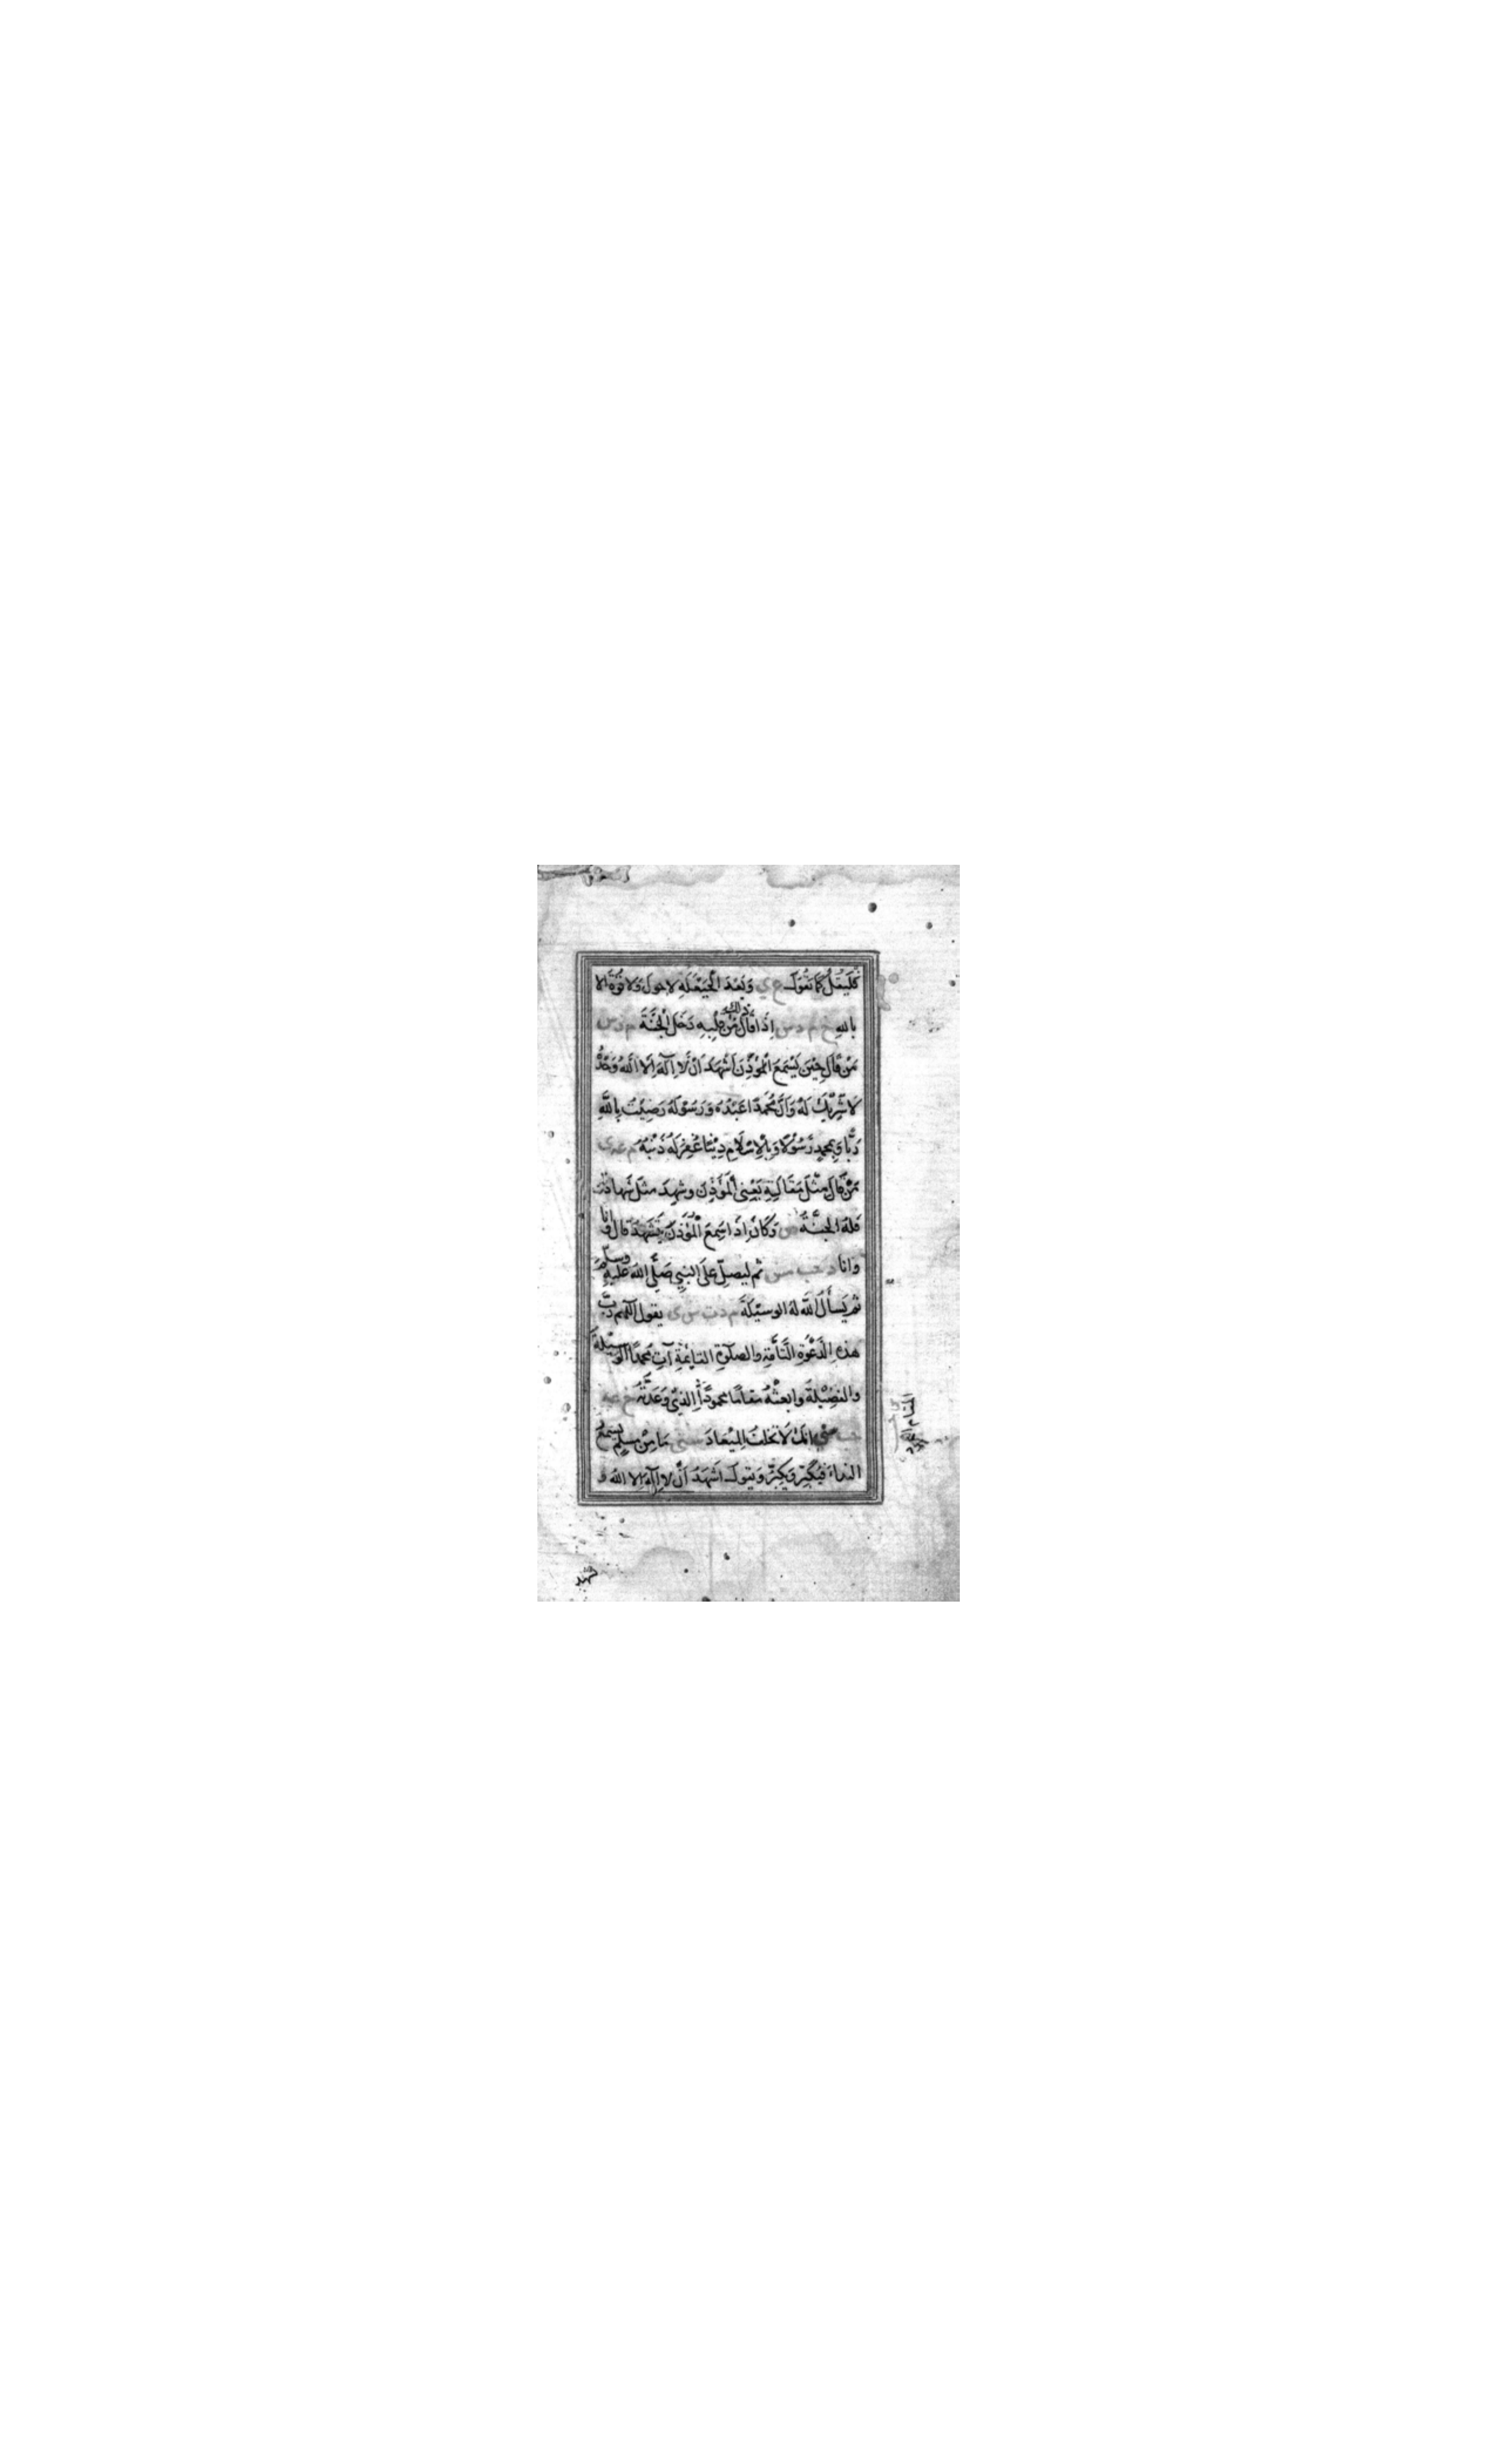 فَلْيَقُلْ كَمَا يَقُولُ ع ي وَبَعْدَ الْحَيْعَلَةِ لا حول وَلا قُوَّةَ الا
باللهِ خ م د س اِذَا قَالَ ذلك مِنْ قَلْبِهِ دَخَلَ الْجَنَّةَ م د س
مَنْ قَالَ حِيْنَ يَسْمَعُ الْمُؤَذِّنَ اَشْهَدُ اَنْ لَا اِلَهَ اِلَّا اللهُ وَحْدَهُ
لَا شَرِيْكَ لَهُ وَاَنَّ مُحَمَّدًا عَبْدُهُ وَرَسُوْلُهُ رَضِيْتُ بِاللهِ
رَبًّا وَبِمُحَمَّدٍ رَسُوْلًا وَبِالْاِسْلَامِ دِيْنًا غُفِرَ لَهُ ذَنْبُهُ م عه ى
مَنْ قَالَ مِثْلَ مَقَالَتِهِ يَعْنِى الْمُؤَذِّنَ وشَهِدَ مثلَ شَهادته
فَلَهُ الجنَّةُ ص وَكَانَ اِذَا سَمِعَ الْمُؤَذِّنَ يَتَشَهَّدُ قال وانا
وانا د حب مس ثم ليصلِّ عَلَى النبِي صَلَّى الله عَليْهِ وسلم
ثم يَسأَلُ اللهَ لهُ الوسِيْلَةَ م د ت س ى يقول اللهم ربَّ
هذهِ الدَعْوَةِ التَّامَّةِ والصلوةِ القايمَةِ آتِ محمدًا الوسِيْلَةَ
والفضِيْلَةَ وابعثْهُ مقامًا محمودًا الذِيْ وَعَدْتَهُ خ عه
حب سنى انك لَا تخلفُ المِيْعَادَ سنى مَا مِنْ مسلمٍ يسمع
النداءَ فيُكَبِّرُ وَيُكَبِّرُ وَيقول اَشْهَدُ اَنْ لا اِلهَ اِلا الله و
المقام المحمود
شهد